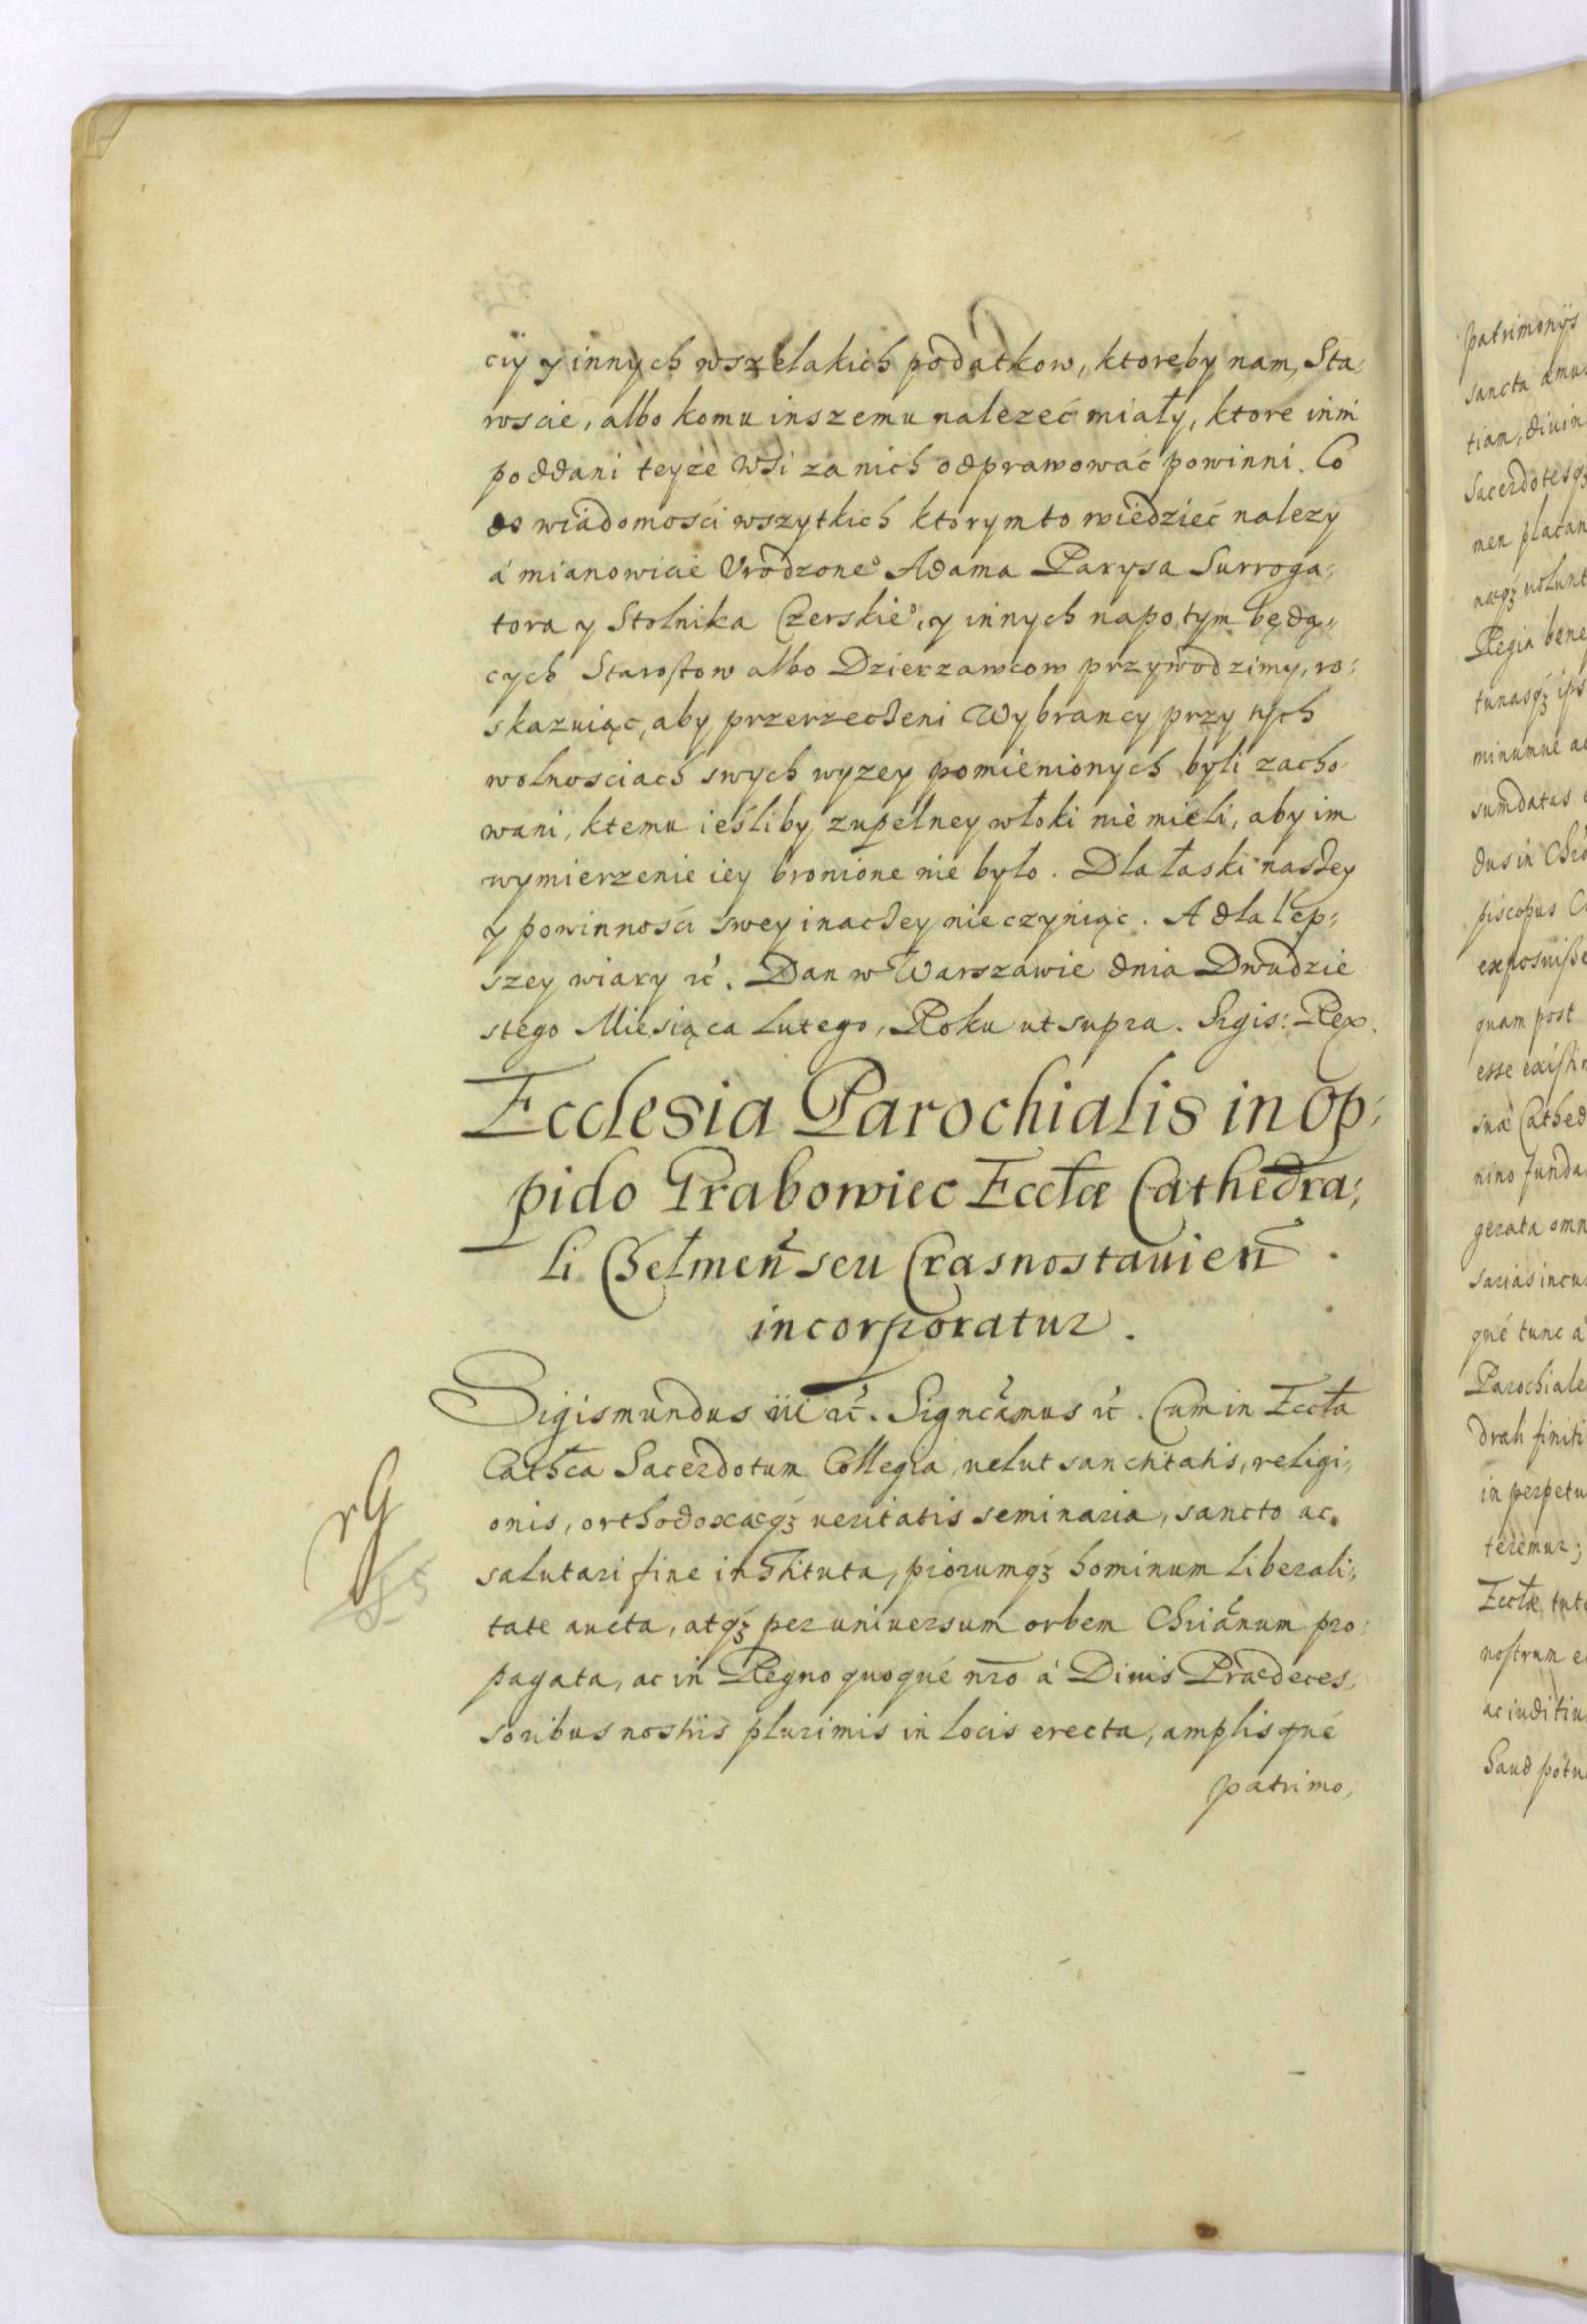 cÿ y innych wszelakich podatkow, ktoreby nam, Sta:
roscie, albo komu inszemu nalezeć miały, ktore inni
poddani teyze Wsi za nich odprawować powinni. Co
do wiadomości wszytkich ktorym to wiedzieć nalezy
á mianowicie Vrodzone⁰ Adama Parysa Surroga:
tora y Stolnika Czerskie⁰, y innych napotym będą:
cych Starostow albo Dzierzawcow przywodzimy, ro:
skazuiąc, aby przerzeczeni Wybrancy przy tych
wolnosciach swych wyzey pomienionych byli zacho:
wani, ktemu ieśliby zupełney włoki nie mieli, aby im
wymierzenie iey bronione nie było. Dla łaski naszey
y powinności swey inaczey nie czyniąc. A dla lep:
szey wiary etć. Dan w Warszawie dnia Dwudzie
stego Miesiąca Lutego, Roku ut supra. Sigis: Rex.
Ecclesia Parochialis in Op:
pido Grabowiec Eccłæ Cathedra:
li Chełmeñ seu Crasnostauieñ
incorporatur.
Sigismundus iii etć. Signcãmus etć. Cum in Eccła
Cathca Sacerdotum Collegia, uelut sanctitatis, religi:
onis, orthodoxaeqȝ ueritatis seminaria, sancto ac
salutari fine instituta, piorumqȝ hominum liberali:
tate aucta, atqȝ per uniuersum orbem Chriãnum pro:
pagata, ac in Regno quoqué nr̃o á Diuis Praedeces:
soribus nostris plurimis in locis erecta, amplisqué
patrimo:
patrimonÿs
sancta
tiam, diuin
Sacerdotesqȝ
men placan
naqȝ uolunt
Regia bene
tunasqȝ ips
minumue a
sumdatas
dus in Chr̃o
piscopus C
exposuiße
quam post
esse existi
sua Cathed
nino funda
gerata omn
sarias incu
qué tunc á
Parochiale
drali finiti
in perpetu
teremur;
Eccłæ tut
nostrum e
ac iuditiu
haud potu